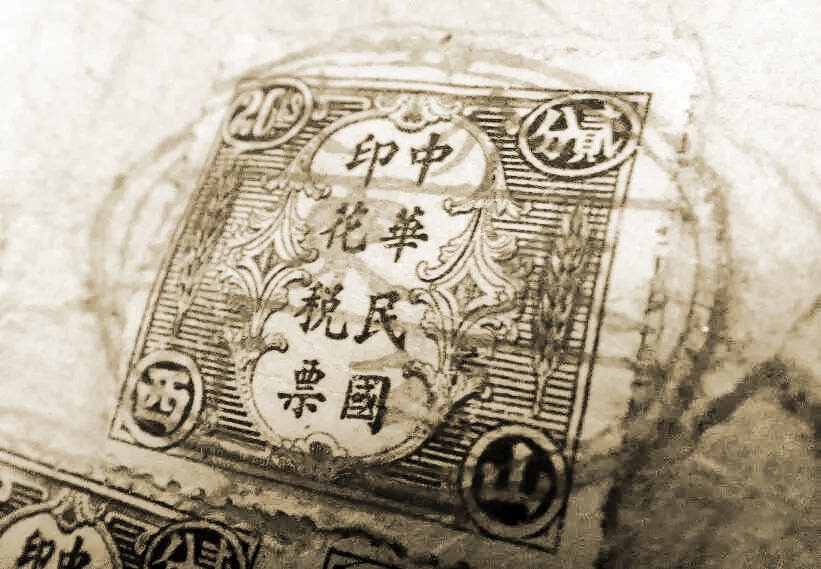 貳分
中華民國
印花税票
山西
中
印